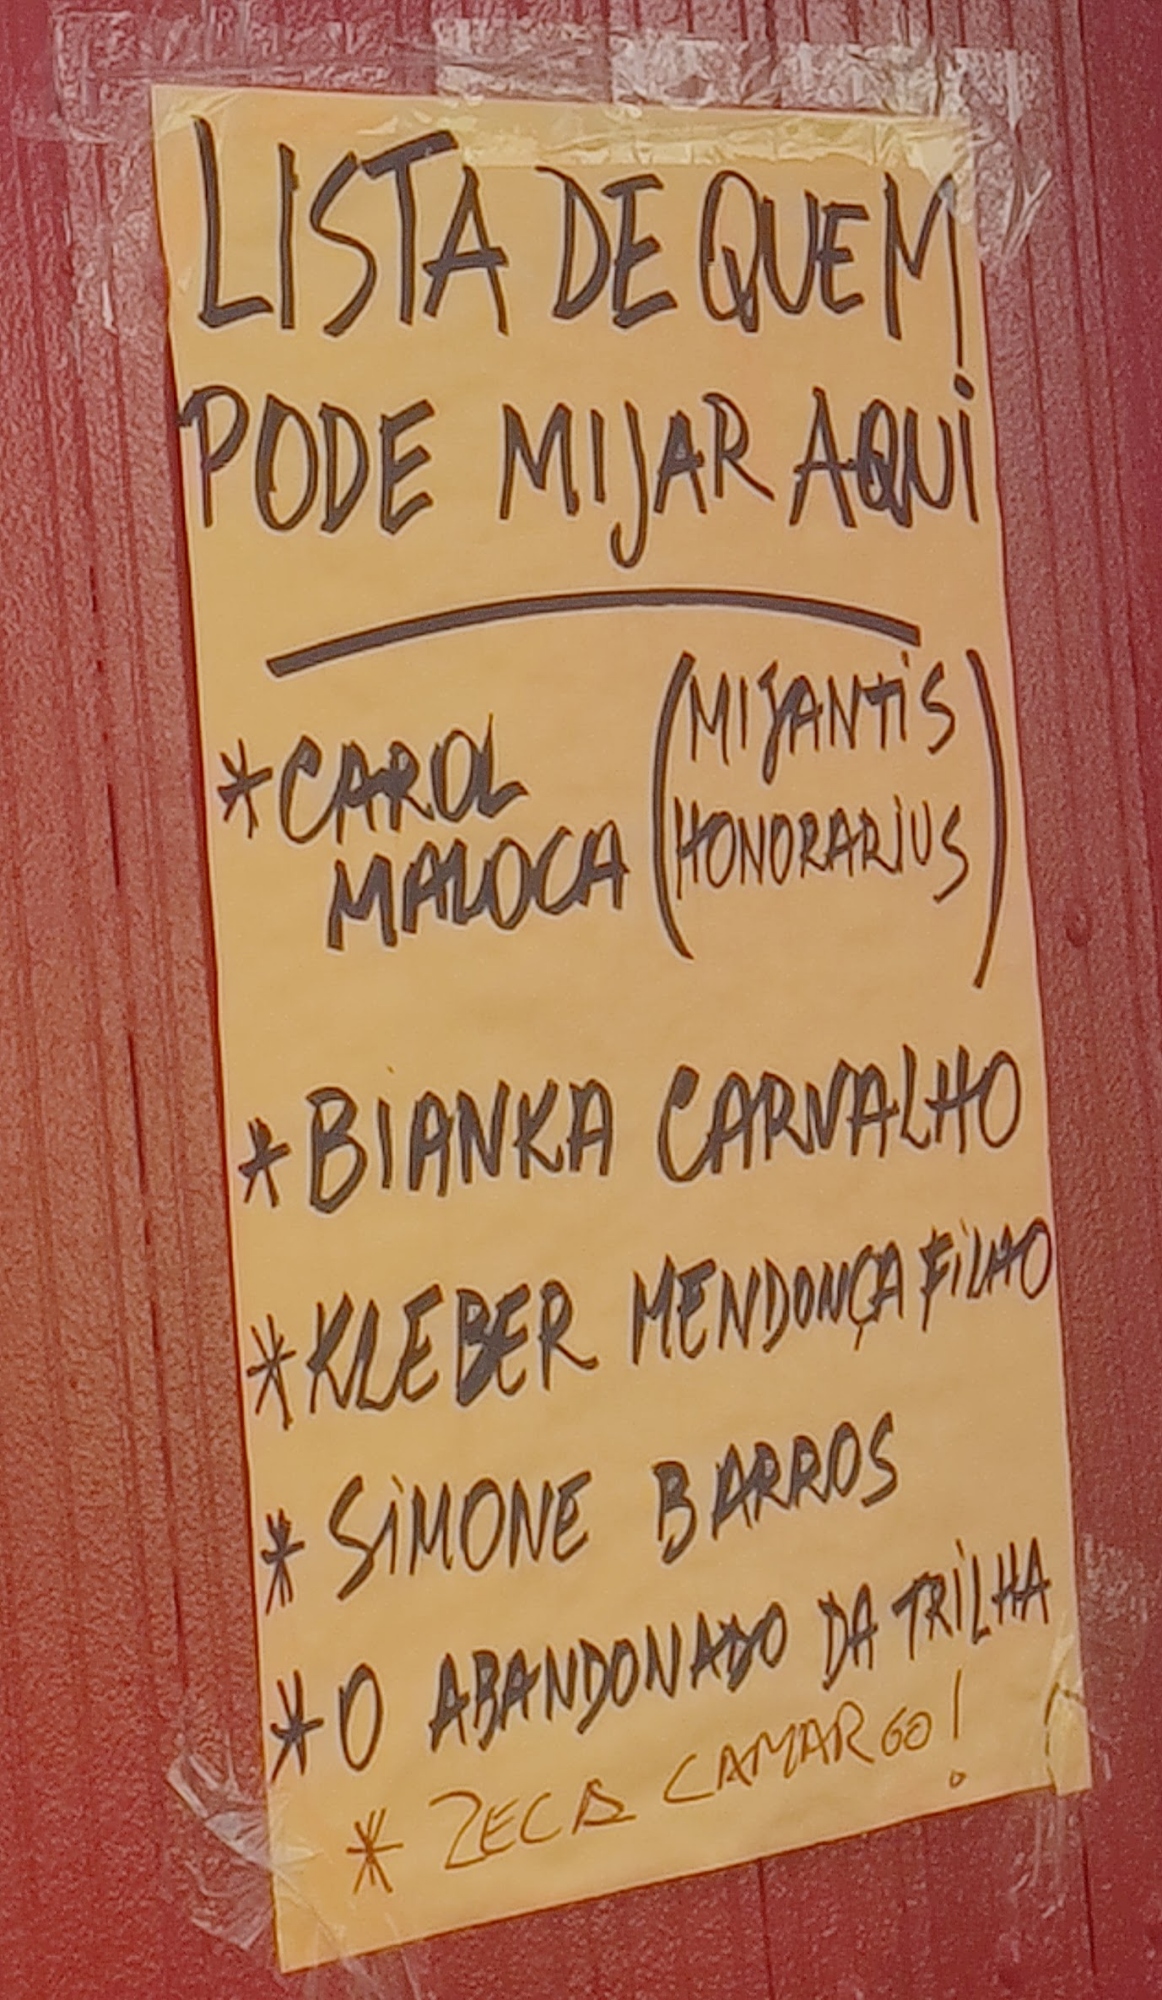 LISTA DE QUEM
PODE MIJAR AQUI
*CAROL
MALOCA
(MIJANTIS
HONORARIUS)
*BIANKA CARVALHO
*KLEBER MENDONÇA FILHO
*SIMONE BARROS
*O ABANDONADO DA TRILHA
* ZECA CAMARGO!